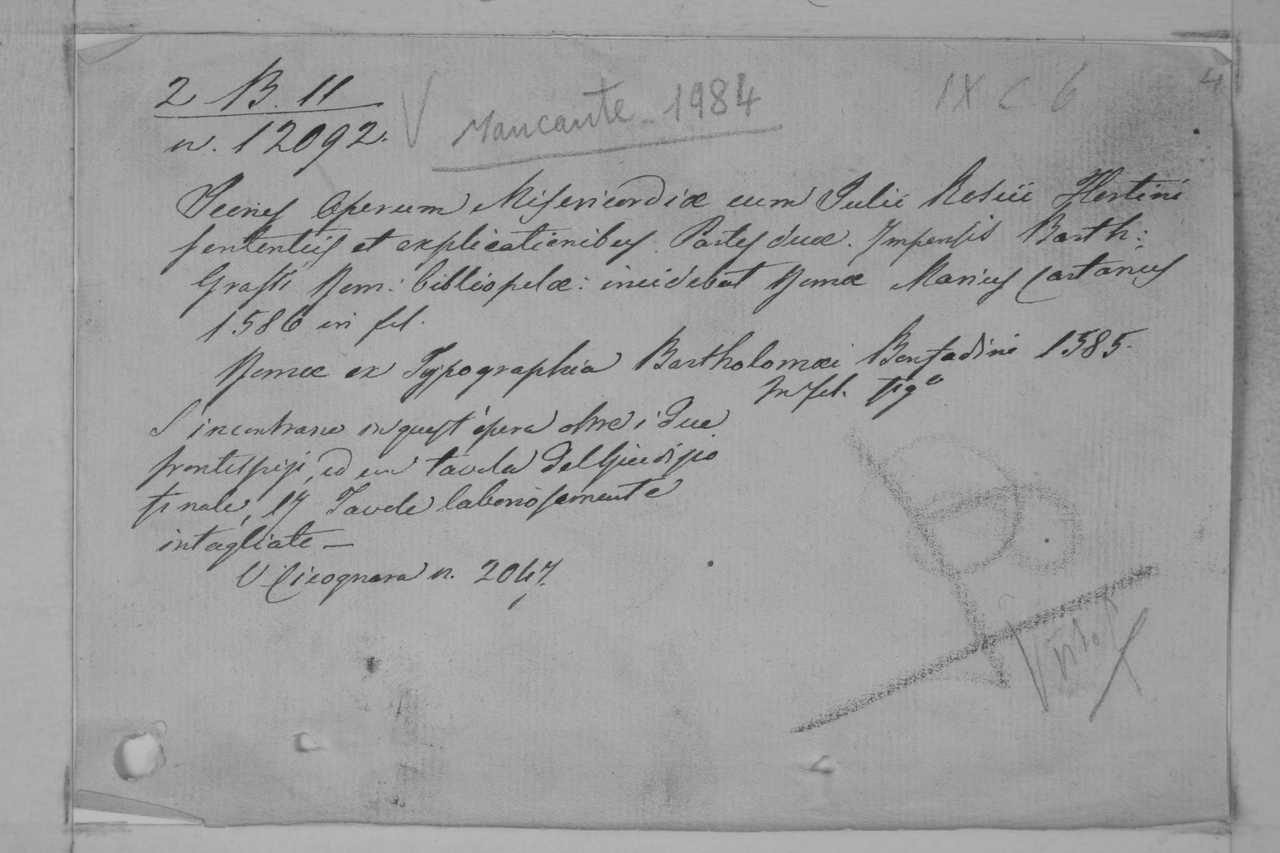 2 B. 11
n. 12092.
V Mancante - 1984
IX C 6
4
Icones Operum Misericordiæ cum Julii Rosii Hortini
sententiis et explicationibus. Partes duæ. Impensis Barth:
Grassi Rom: bibliopolæ: incidebat Romæ Marius Cartarius
1586 in fol.
Romæ ex Typographia Bartholomæi Bonfadini 1585.
In fol. fig.o
S'incontrano in quest'opera oltre i due
frontespizj, ed un tavola del Giudizio
finale, 17 Tavole laboriosamente
intagliate —
V. Cicognara n. 2047.
Visto